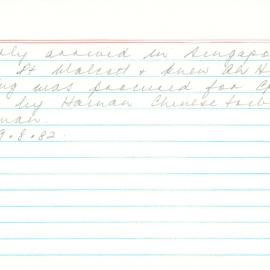 arrived in Singapo
Pt Walcott & knew Ah H
was procured for C
by Hainan Chinese
9.8.82.